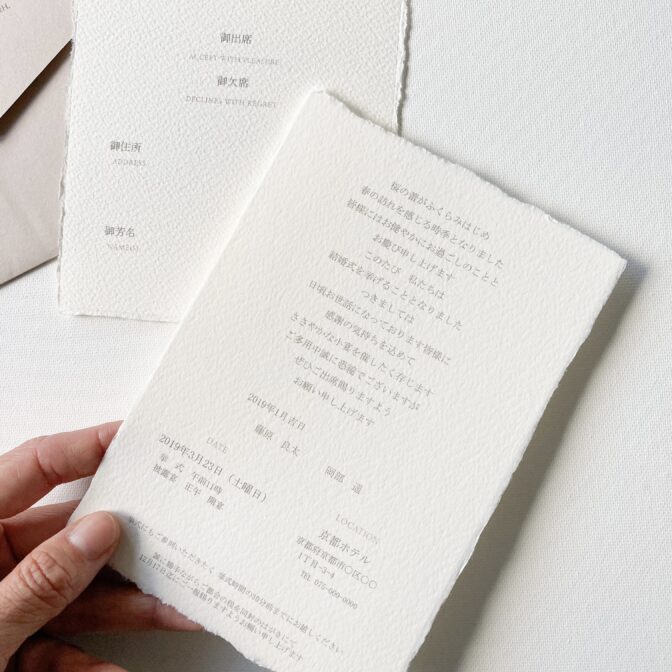 御出席
ACCEPT WITH PLEASURE
御欠席
DECLINES WITH REGRET
御住所
ADDRESS
御芳名
NAME(S)
桜の蕾がふくらみはじめ
春の訪れを感じる時季となりました
皆様にはお健やかにお過ごしのことと
お慶び申し上げます
このたび 私たちは
結婚式を挙げることとなりました
つきましては
日頃お世話になっております皆様に
感謝の気持ちを込めて
ささやかな小宴を催したく存じます
ご多用中誠に恐縮でございますが
ぜひご出席賜りますよう
お願い申し上げます
2019年1月吉日
藤原 良太
岡部 遥
DATE
2019年3月23日(土曜日)
挙 式 午前11時
披露宴 正午 開宴
LOCATION
京都ホテル
京都府京都市〇区〇〇
1丁目-3-4
TEL 075-000-0000
挙式にもご参列いただきたく 挙式時間の30分前までにお越しください
誠に勝手ながらご都合の程を同封のはがきにて
12月17日迄にご一報賜りますようお願い申し上げます